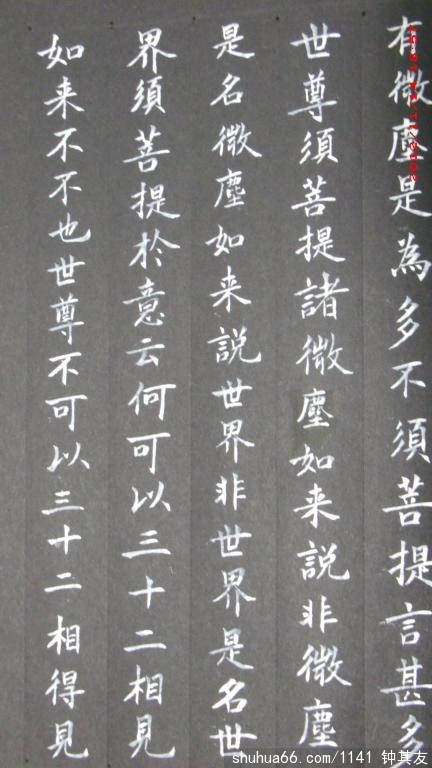 有微塵是為多不須菩提言甚多
世尊須菩提諸微塵如来說非微塵
是名微塵如来說世界非世界是名世
界須菩提於意云何可以三十二相見
如来不不也世尊不可以三十二相得見
shuhua66.com/1141 钟其友